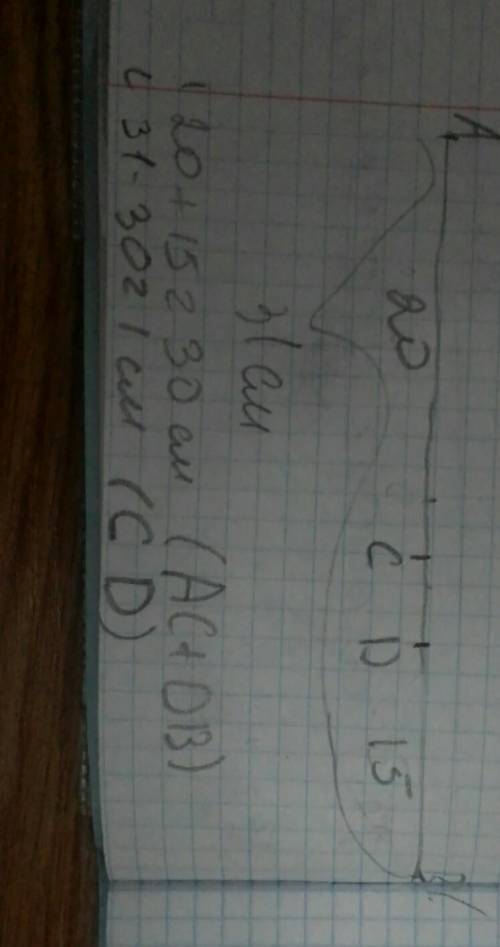 A 20 C D 15 B
31 см
1 20 + 15 = 30 см (AC + DB)
2 31 - 30 = 1 см (CD)